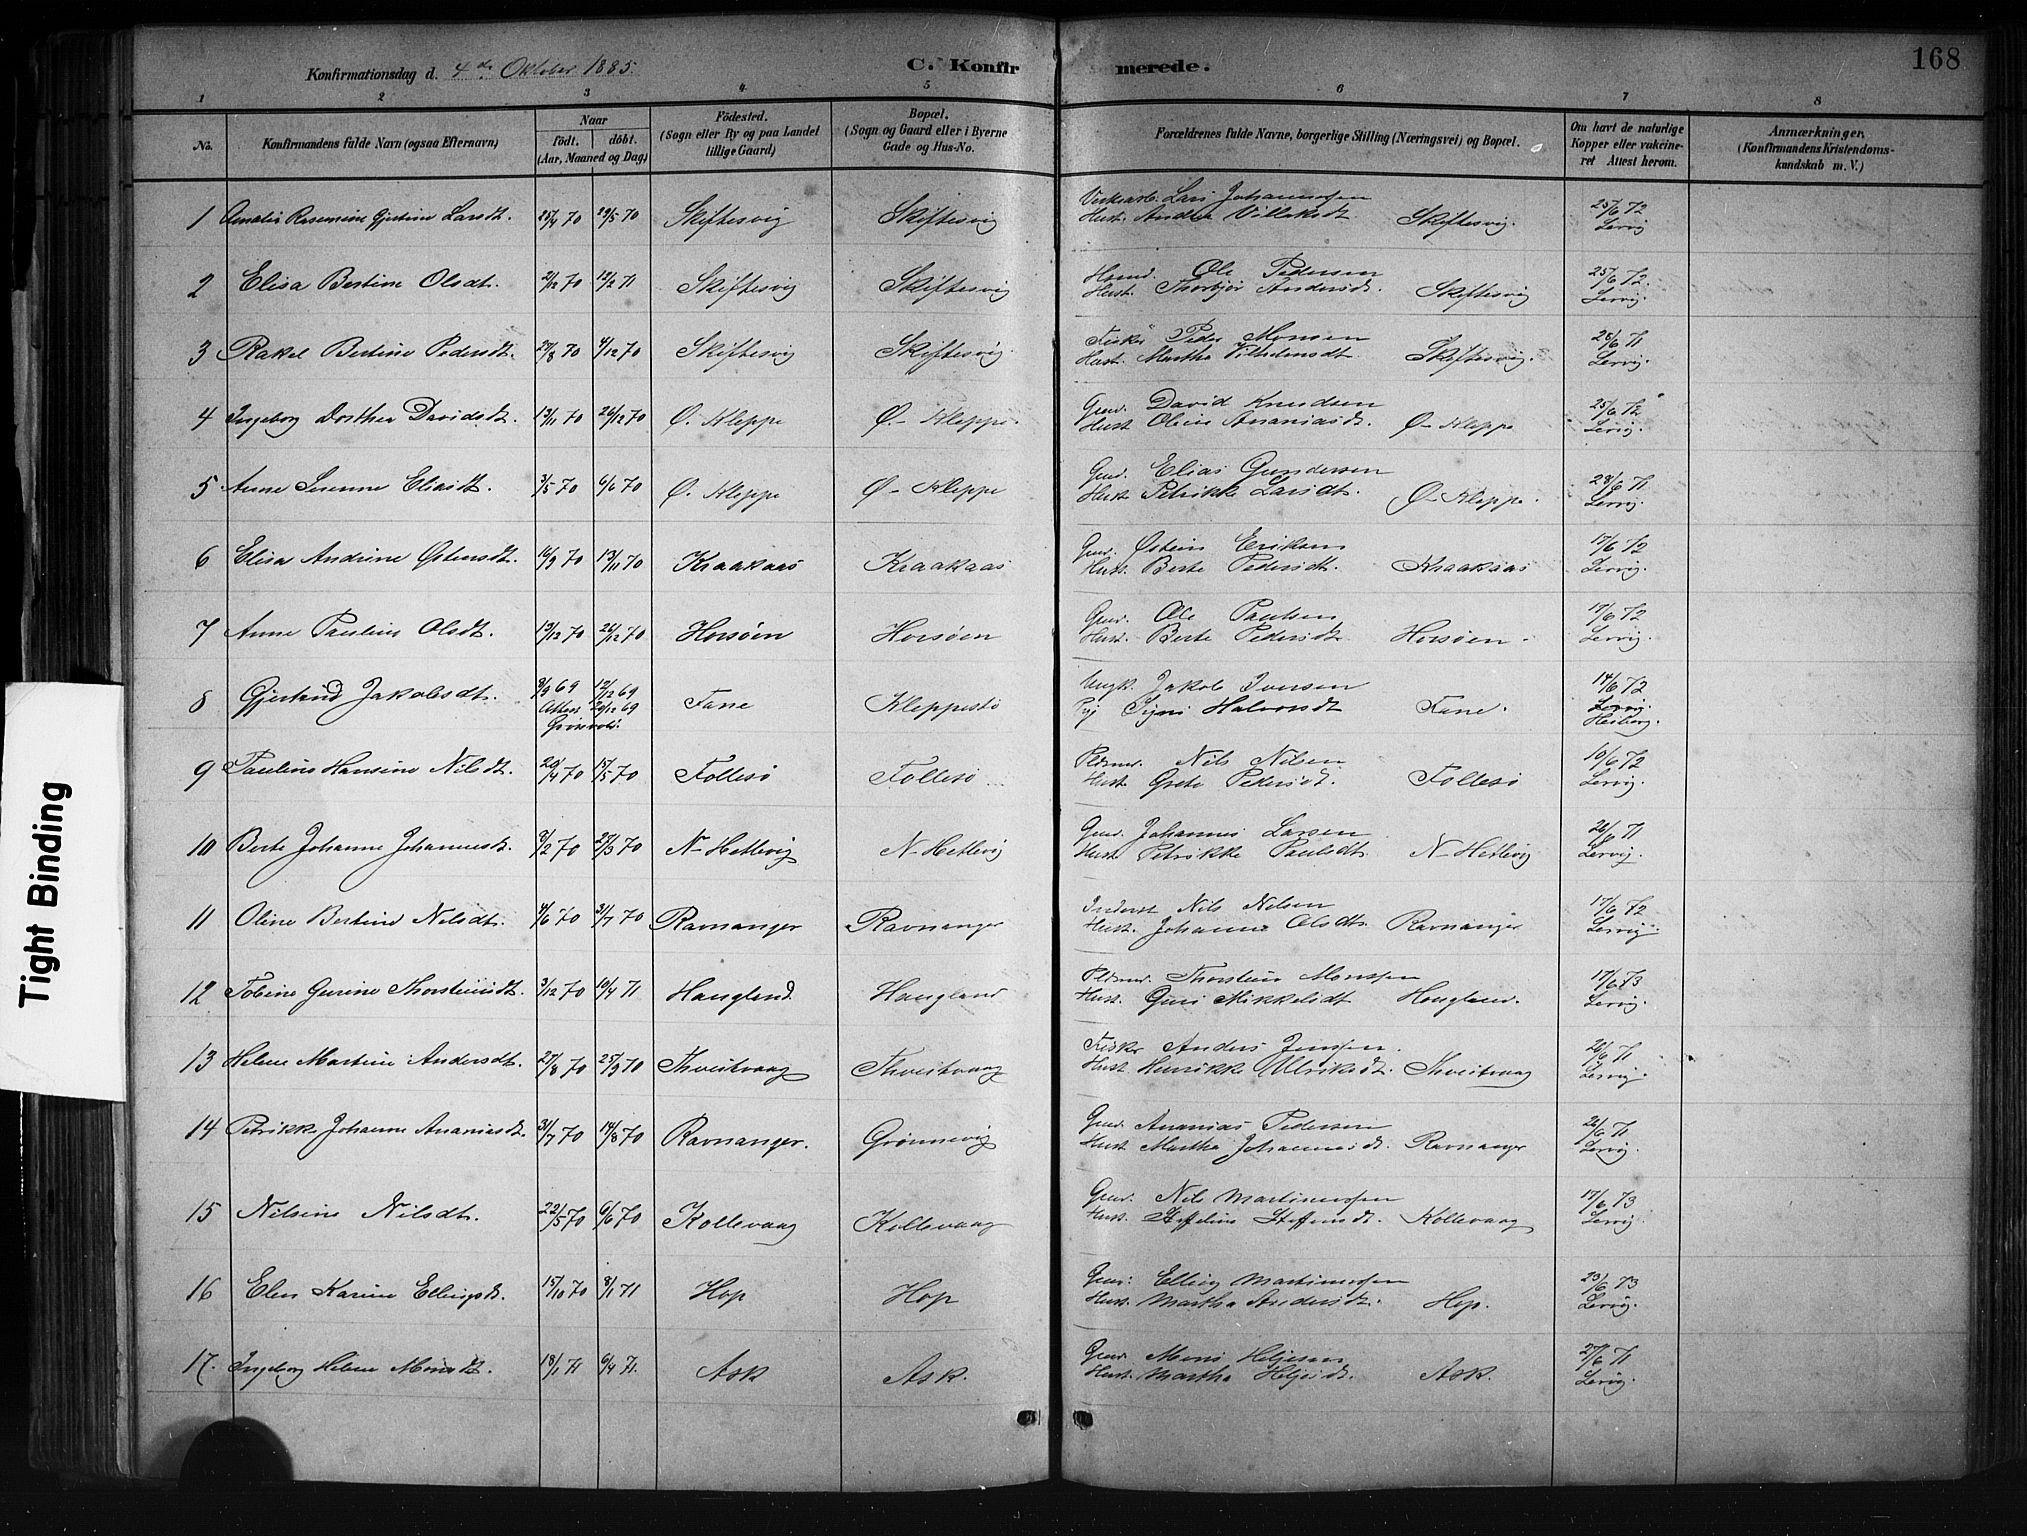 168
Konfirmationsdag d. 4de Oktober 1885.
C. Konfirmerede.
1 2 3 4 5 6 7 8
No.
Konfirmandens fulde Navn (ogsaa Efternavn)
Naar
födt. döbt.
(Aar, Maaned og Dag)
Födested.
(Sogn eller By og paa Landet
tillige Gaard)
Bopæl.
(Sogn og Gaard eller i Byerne
Gade og Hus-No.
Forældrenes fulde Navne, borgerlige Stilling (Næringsvei) og Bopæl.
Om havt de naturlige
Kopper eller vakcine-
ret Attest herom.
Anmærkninger.
(Konfirmandens Kristendoms-
kundskab m. V.)
1 Amalia Rasmine Gjertine Larsdt. 25/4 70 29/5 70 Skiftesvig Skiftesvig Lars Johannssen
Hust. Andrea Villaksdt Skiftesvig. 25/6 72
Lervig
2 Elisa Bertine Olsdt. 2/12 70 12/2 71 Skiftesvig Skiftesvig Ole Pedersen
Hust. Thorbjør Andersd. Skiftesvig 25/6 72.
Lervig.
3 Rakel Bertine Pedersdt. 27/8 70 4/12 70 Skiftesvig Skiftesvig. Fisker Peder Monsen
Hust. Martha Skiftesvig. 26/6 71
Lervig.
4 Ingeborg Dorthea Davidsdt. 13/11 70 26/12 70 Ø. Kleppe Ø- Kleppe. Grmd. David Knudsen
Hust Oline Ananiasd. Ø- Kleppe 25/6 72
Lervig.
5 Anne Serene Eliasdt. 3/5 70 6/6 70 Ø. Kleppe Ø- Kleppe Grmd. Elias Gundersen
Hust Petrikke Larsdt. Ø- Kleppe. 28/6 71
Lervig.
6 Elisa Andrine Østensdt. 16/9 70 13/11 70 Kraakaas Kraakaas Grmd. Østein Eriksen
Hust. Berte Pedersdt. Kraakaas 17/6 72
Lervig.
7 Anne Pauline Olsdt. 13/12 70 26/12 70 Horsøen Horsøen Grmd. Ole Paulsen
Hust. Berte Pedersdt Horsøen. 17/6 72
Lervig.
8 Gjertrud Jakobsdt. 3/9 69 12/12 69 Fane Kleppestø Ungk. Jakob Iversen
Pig Signi Halvorsdt Fane. 14/6 72
9 Pauline Hansine Nilsdt. 20/4 70 15/5 70 Follesø Follesø Nils Nilsen
Hust Grete Pedersdt. Follesø 10/6 72
Lervig.
10 Berte Johanne Johannesdt. 8/2 70 27/3 70 N- Hetlevig N- Hetlevig Grmd. Johannes Larsen
Hust Petrikke Paulsdt. N- Hetlevig 26/6 71
Lervig.
11 Oline Bertine Nilsdt. 4/6 70 31/7 70 Ravnanger Ravnanger Inderst Nils Nilsen
Hust. Johanne Olsdt. Ravnanger 17/6 72
Lervig.
12 Tobine Gurine Thorsteinsdt. 3/12 70 10/4 71 Haugland Haugland Thorstein Monssen
Hust. Guri Mikkelsdt Haugland. 17/6 73
Lervig.
13 Helene Martine Andersdt. 27/8 70 25/9 70 Thveitvaag Thveitvaag Fisker Anders Jenssen.
Hust Henrikke Ulriksdt. Thveitvaag 26/6 71
Lervig.
14 Petrikke Johanne Ananiasdt. 31/7 70 14/8 70 Ravnanger. Grønnevig Grmd Ananias Pedersen
Hust. Martha Johannesdt. Ravnanger 26/6 71
Lervig.
15 Nilsine Nilsdt. 22/5 70 6/6 70 Kollevaag Kollevaag Grmd. Nils Martinussen
Hust. Steffeline Steffensdt. Kollevaag 17/6 73
Lervig.
16 Elen Karine Ellingsdt. 15/10 70 8/1 71 Hop Hop Grmd: Elling Martinussen
Hust. Martha Andersdt. Hop. 23/6 73
Lervig.
17. Ingeborg Helene Monsdt. 18/1 71 6/4 71. Ask Ask. Grmd Mons Heljesen
Hust. Martha Heljesdt. Ask. 27/6 71
Lervig.
Tight Binding